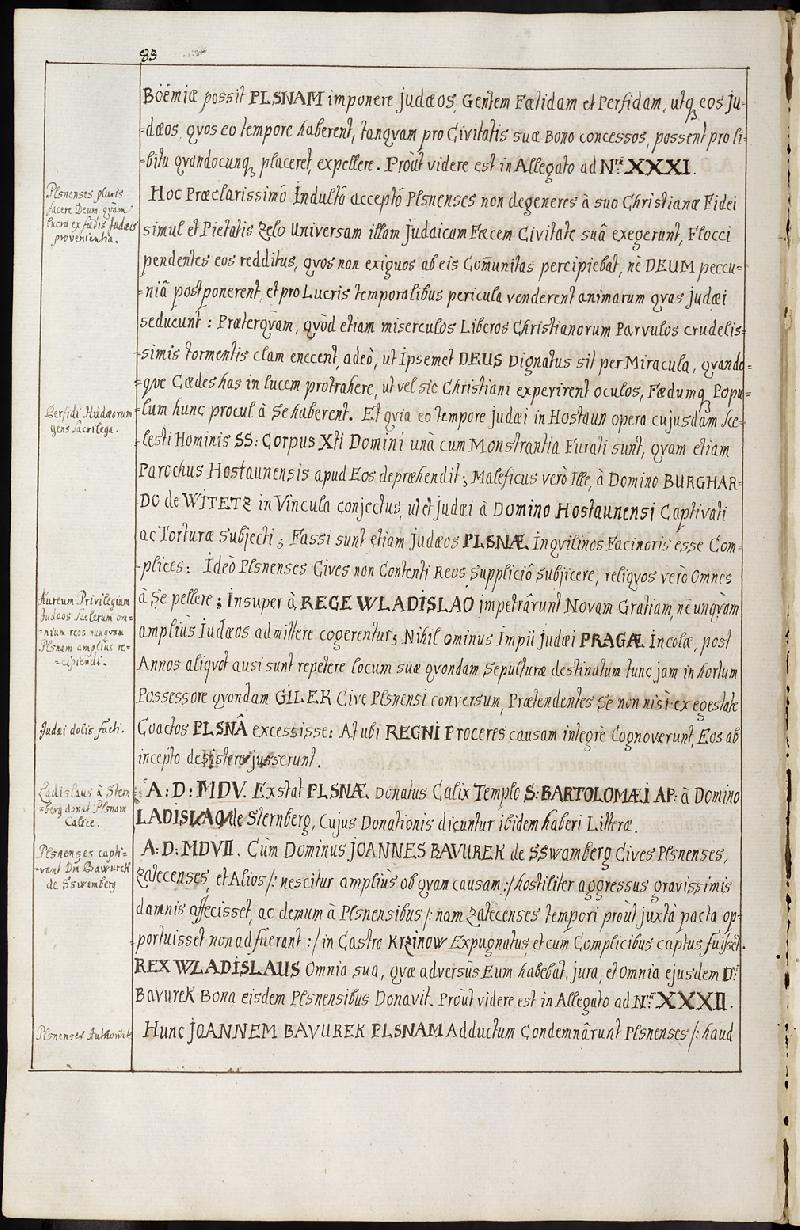 83
Böëmiæ possit PLSNAM imponere judæos, Gentem Fætidam et Perfidam, utq; eos Ju-
-dæos, quos eo tempore haberent, tanquam pro Civitatis suæ Bono concessos, possent pro li-
-bitu quandocunq; placeret, expellere. Proùt videre est in Allegato ad Nr͞ū XXXI.
Plsnenses pluris
facere Deum quàm
Lucra ex fædis Judæis
provenientia.
Hoc Præclarissimô Indultô acceptô Plsnenses non degeneres à suo Christianæ Fidei
simul et Pietatis Zelo Universam illam Judaicam Fæcem Civitate suâ exegerunt, Flocci
pendentes eos redditus, quos non exiguos ab eis Com̃unitas percipiebat, nè DEUM peccu-
-niâ postponerent, et pro Lucris temporalibus pericula venderent animarum quas Judæi
seducunt: Præterquàm, quòd etiam miserculos Liberos Christianorum Parvulos crudelis-
-simis tormentis clam enecent, adeò, ut ipsemet DEUS Dignatus sit per Miracula, quando-
-que Cædes has in lucem protrahere, ut vel sic Christiani experirent oculos, Fædumq; Popu-
Perfidi Hudæorum
gens Sacrilega.
-lum hunc procul à Se haberent. Et quia eo tempore judæi in Hostaun opera cujusdam Sce-
-lesti Hominis SS: Corpus Xti Domini unà cum Monstrantia Furati sunt, quam etiam
Parochus Hostaunensis apud Eos depræhendit; Maleficus verò Ille, à Domino BURGHAR-
DO de WITETZ in Vincula conjectus, ut et Judæi à Domino Hostaunensi Captivati
ac Torturæ Subjecti; Fassi sunt etiam Judæos PLSNÆ Inquilinos Facinoris esse Com-
-plices: Ideò Plsnenses Cives non Contenti Reos Suppliciô subjicere, reliquos verò Omnes
Aureum Privilegium
Judæos Scelerum om-
-nium reos nunquam
Plsnam amplius re-
-cipiendi.
à Se pellere; Insuper à REGE WLADISLAO impetrârunt Novam Gratiam, nè unquàm
ampliùs Judæos admittere cogerentur; Nihil ominùs Impii Judæi PRAGÆ Incolæ, post
Annos aliquot ausi sunt repetere locum suæ quondam Sepulturæ destinatum tunc jam in hortum
Possessore quondam GILEK Cive Plsnensi conversum, Prætendentes Se non nisi ex egestate
Judæi dolis facti.
Coactos PLSNÂ excessisse: At ubi REGNI Proceres causam integrè Cognoverunt, Eos ab
incepto desistere jusserunt.
Ladislaus à Stern
-berg donat Plsnam
Calice.
A: D: MDV. Exstat PLSNÆ Donatus Calix Templo S: BARTOLOMÆI AP: à Domino
LADISLAO de Sternberg, Cujus Donationis dicuntur ibidem haberi Litteræ.
Plsnenses capti-
-vant Dm̃ Bavurek
de Sswamberg
A: D: MDVII. Cùm Dominus JOANNES BAVUREK de SSwamberg Cives Plsnenses,
Zatecenses, et Alios /: nescitur ampliùs ob quam causam :/ hostiliter aggressus gravissimis
damnis affecisset, ac demum à Plsnensibus /: nam Zatecenses tempori proùt juxtà pacta op-
portuisset non adfuerant :/ in Castro KRZINOW Expugnatus, et cum Complicibus captus fuisset.
REX WLADISLAUS Omnia sua, quæ adversùs Eum habebat, jura, et Omnia ejusdem D͞n͞i
Bavurek Bona eisdem Plsnensibus Donavit. Proùt videre est in Allegato ad Nr͞ū XXXII.
Plsnenses
Hunc JOANNEM BAVUREK PLSNAM Adductum Condemnârunt Plsnenses /: haud